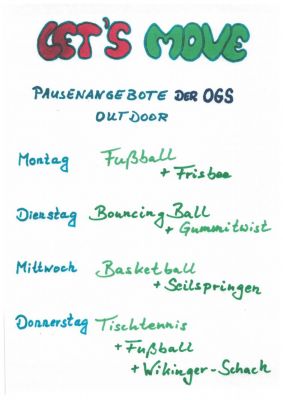 LET'S MOVE
PAUSENANGEBOTE DER OGS
OUTDOOR
Montag Fußball
+ Frisbee
Dienstag Bouncing Ball
+ Gummitwist
Mittwoch Basketball
+ Seilspringen
Donnerstag Tischtennis
+ Fußball
+ Wikinger-Schach